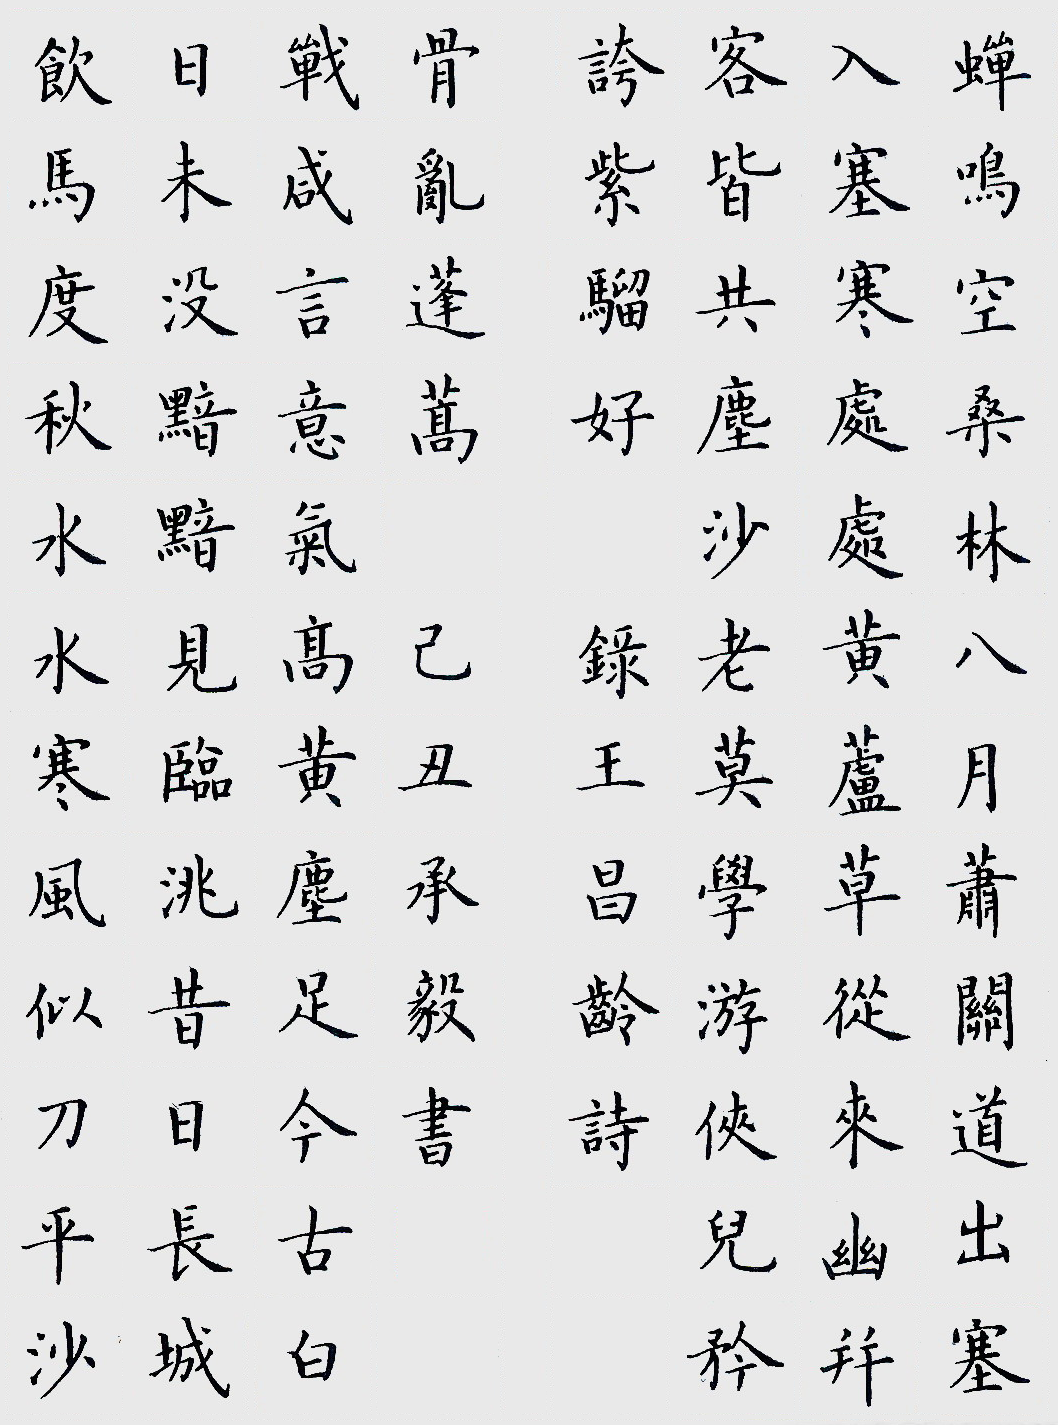 蟬鳴空桑林八月蕭關道出塞
入塞寒處處黄蘆草從來幽并
客皆共塵沙老莫學游俠兒矜
誇紫騮好 錄王昌齡詩
飲馬度秋水水寒風似刀平沙
日未没黯黯見臨洮昔日長城
戰咸言意氣髙黄塵足今古白
骨亂蓬蒿 己丑承毅書